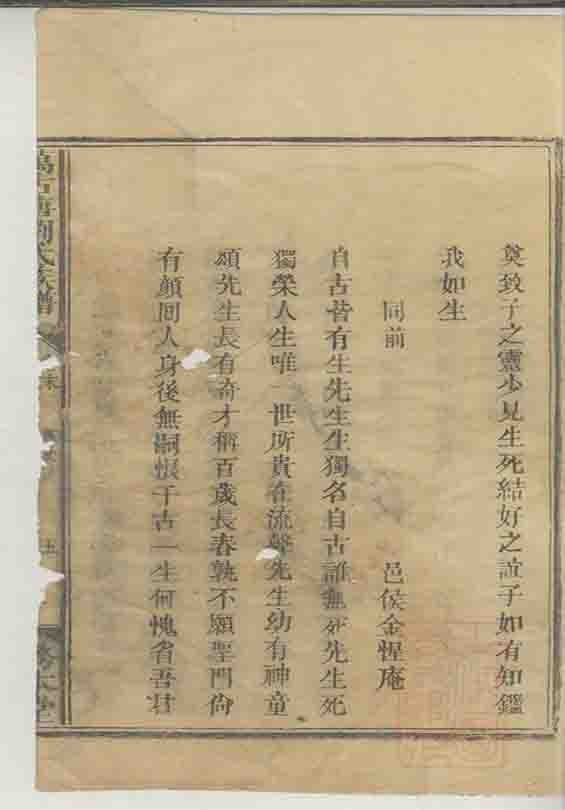 奠致子之靈少見生死結好之誼子如有知鑑
我如生
同前 邑侯金惺庵
自古皆有生先生生獨名自古誰無死先生死
獨榮人生唯一世所貴在流聲先生幼有神童
頌先生長有奇才稱百歲長春孰不願聖門尚
有顏回人身後無嗣恨千古一生何愧省吾君
劉氏族譜
五
務本堂